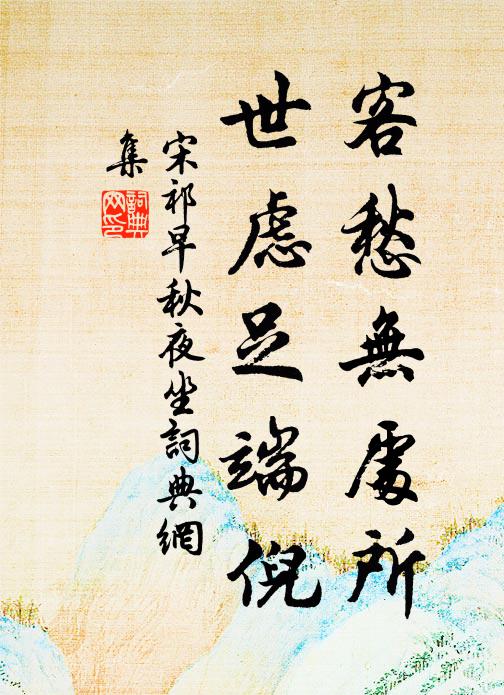 客愁無處所
世慮足端倪
宋祁早秋夜坐詞典網
集
詞典
网印